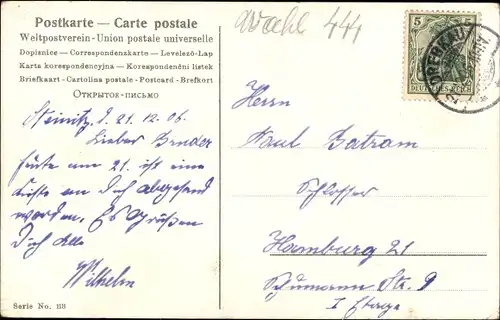 Postkarte — Carte postale
Weltpostverein - Union postale universelle
Dopisnice — Correspondenzkarte — Levelező-Lap
Karta korespondencyjna — Korespondenční listek
Briefkaart - Cartolina postale - Postcard - Brefkort
Открытое-письмо
5 5
DEUTSCHES REICH
DREBKAU
Steinitz, d. 21. 12. 06.
Lieber Bruder
am 21. ist eine
Kiste an Dich abgesand
worden. Es Grüßen
Dich Alle
Wilhelm
Herrn
Paul
Schlosser
Hamburg 21
Schumann Str. 9
I Etage
Serie No. 113